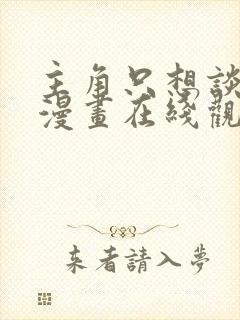 主角只想談
漫畫在綫觀
来者請入夢